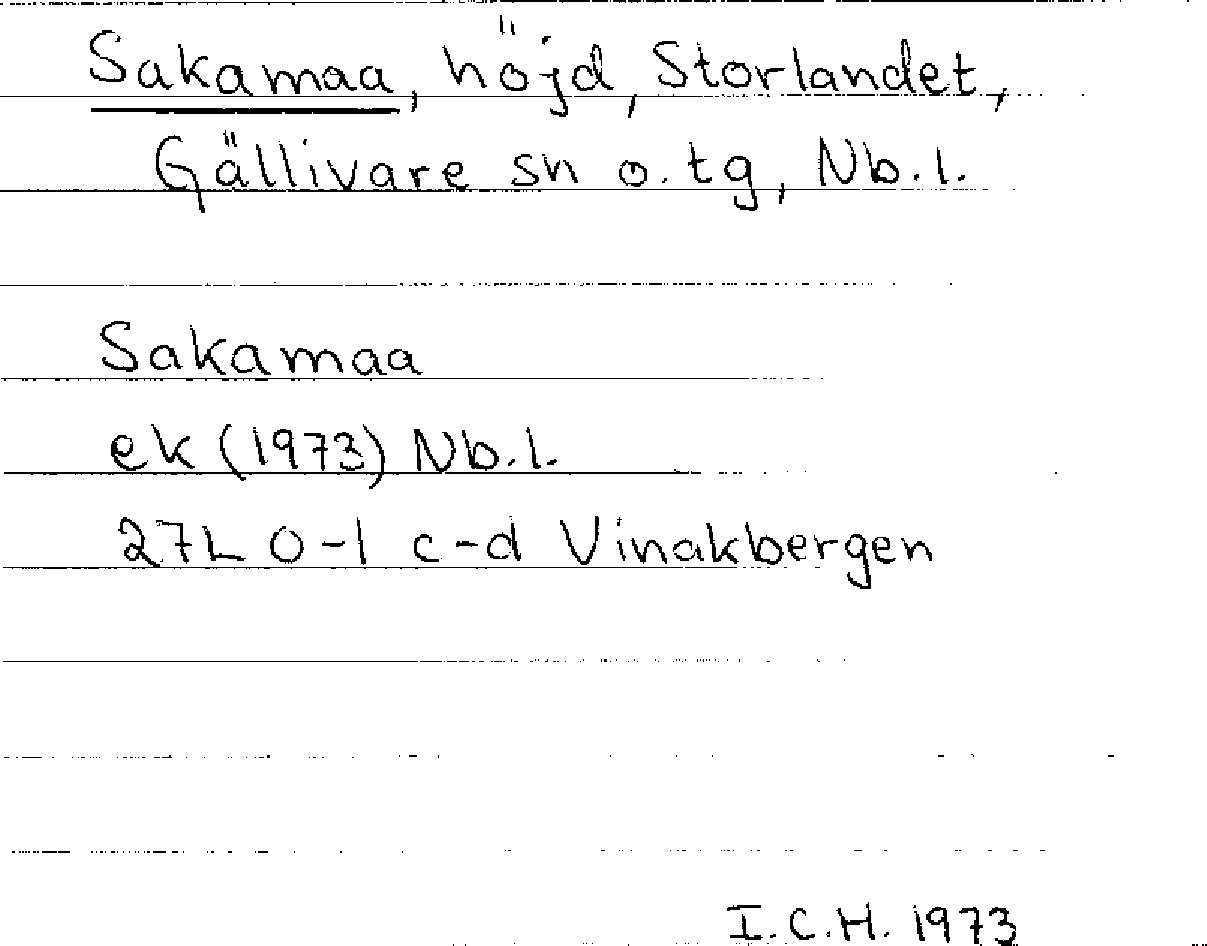 Sakamaa, höjd, Storlandet,
Gällivare sn o. tg, Nb. l.
Sakamaa
ek (1973) Nb. l.
27L 0-1 c-d Vinakbergen
I.C.H. 1973